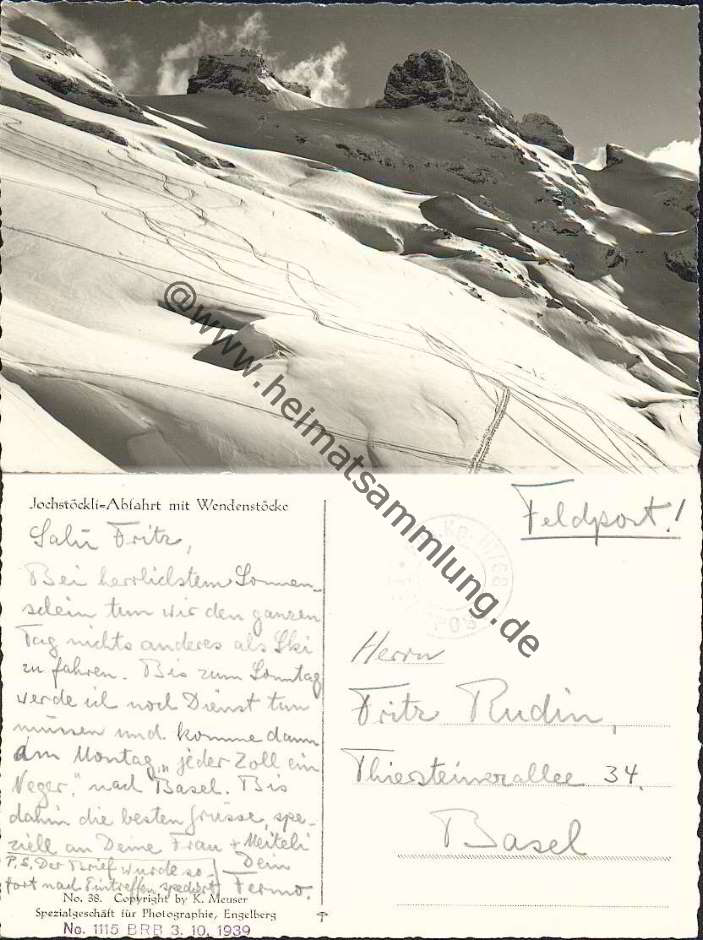 @www.heimatsammlung.de
Jochstöckli-Abfahrt mit Wendenstöcke
Salü Fritz,
Bei herrlichstem Sonnen-
schein tun wir den ganzen
Tag nichts anderes als Ski
zu fahren. Bis zum Sonntag
werde ich noch Dienst tun
müssen und komme dann
am Montag, „jeder Zoll ein
Neger", nach Basel. Bis
dahin die besten Grüsse, spe-
ziell an Deine Frau + Meiteli
Dein
Fermo.
P.S. Der Brief wurde so-
fort nach Eintreffen spediert
No. 38. Copyright by K. Meuser
Spezialgeschäft für Photographie, Engelberg
No. 1115 BRB 3. 10. 1939
Feldpost!
Herrn
Fritz Rudin,
Thiersteinerallee 34.
Basel